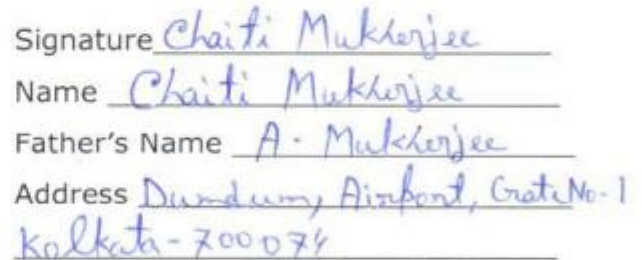 Signature Chaiti Mukherjee
Name Chaiti Mukherjee
Father's Name A. Mukherjee
Address Dumdum, Airport, Gate No-1
Kolkata-700074